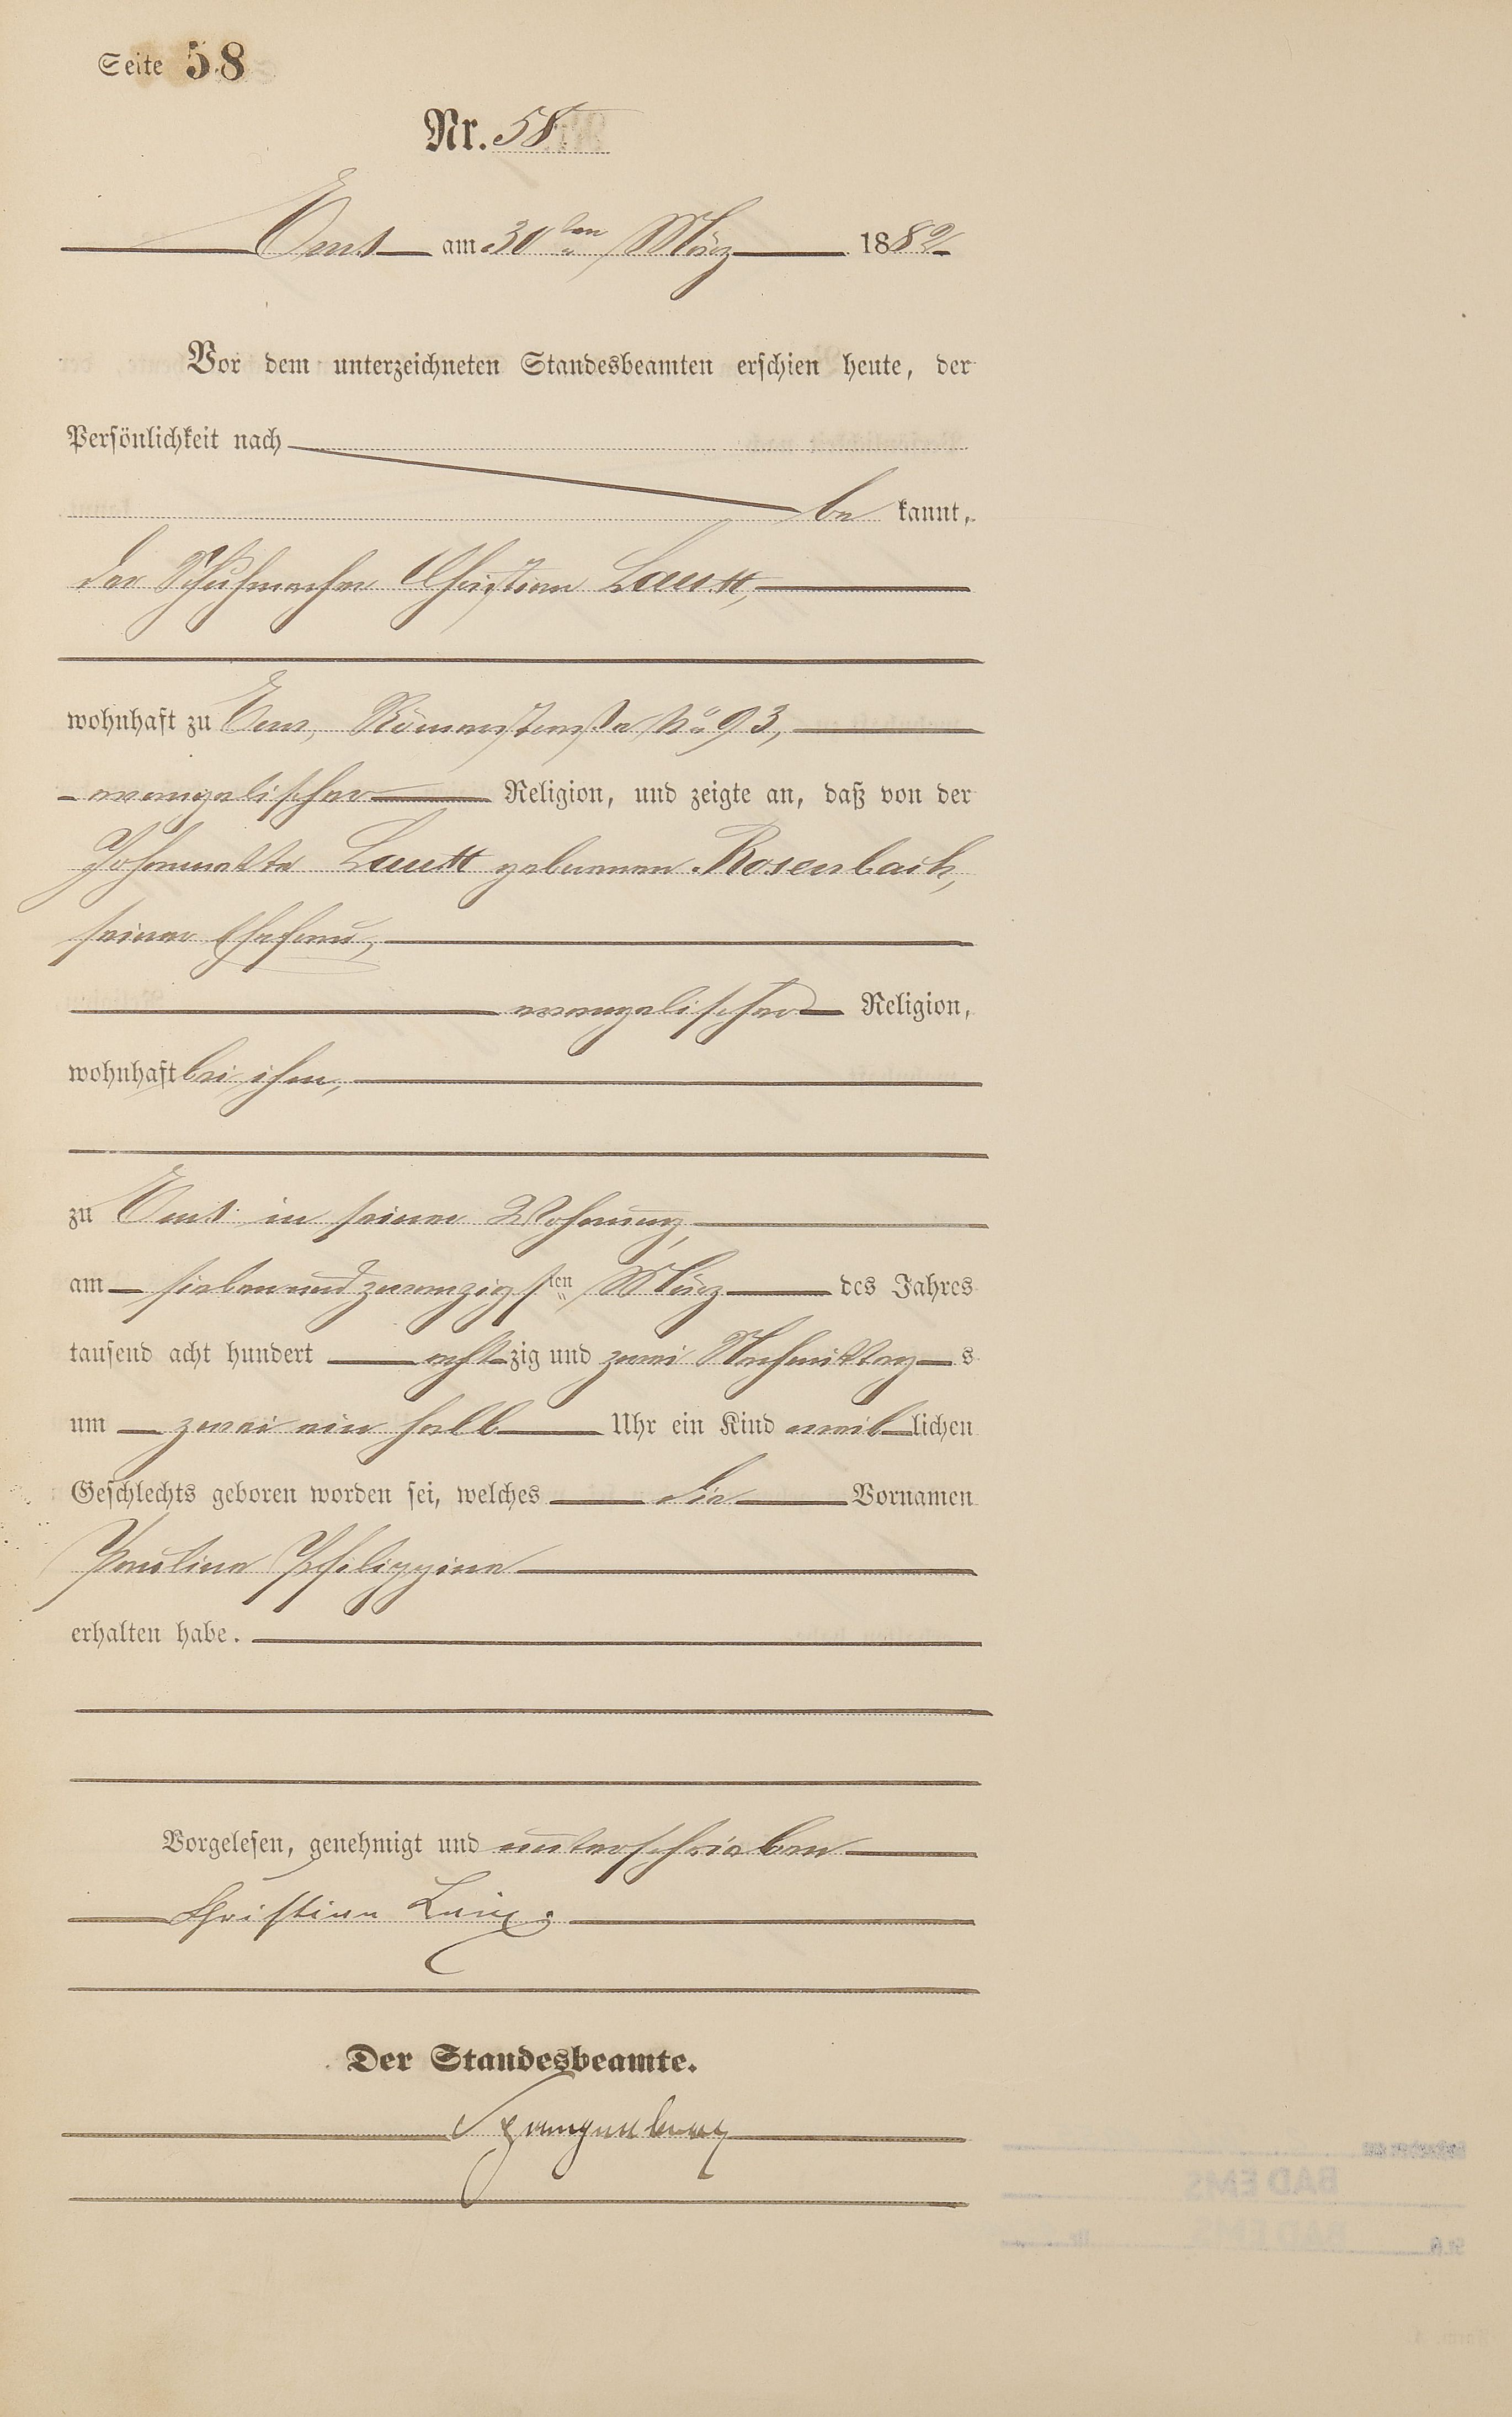 Seite 58
Nr. 58.
Ems am 30ten März 1882
Vor dem unterzeichneten Standesbeamten erschien heute, der
Persönlichkeit nach
be kannt,
der Schuhmacher Christian
wohnhaft zu Ems, Römerstraße No 93,
evangelischer Religion, und zeigte an, daß von der
geborenen Rosenbach,
seiner Ehefrau,
evangelischer Religion,
wohnhaft bei ihm,
zu Ems in seiner Wohnung,
am siebenundzwanzigsten März des Jahres
tausend acht hundert achtzig und zwei Nachmittags
um zwei ein halb Uhr ein Kind weiblichen
Geschlechts geboren worden sei, welches die Vornamen
Pauline Philippine
erhalten habe.
Vorgelesen, genehmigt und unterschrieben
Christian
Der Standesbeamte.
Spangenberg
BAD EMS
BAD EMS